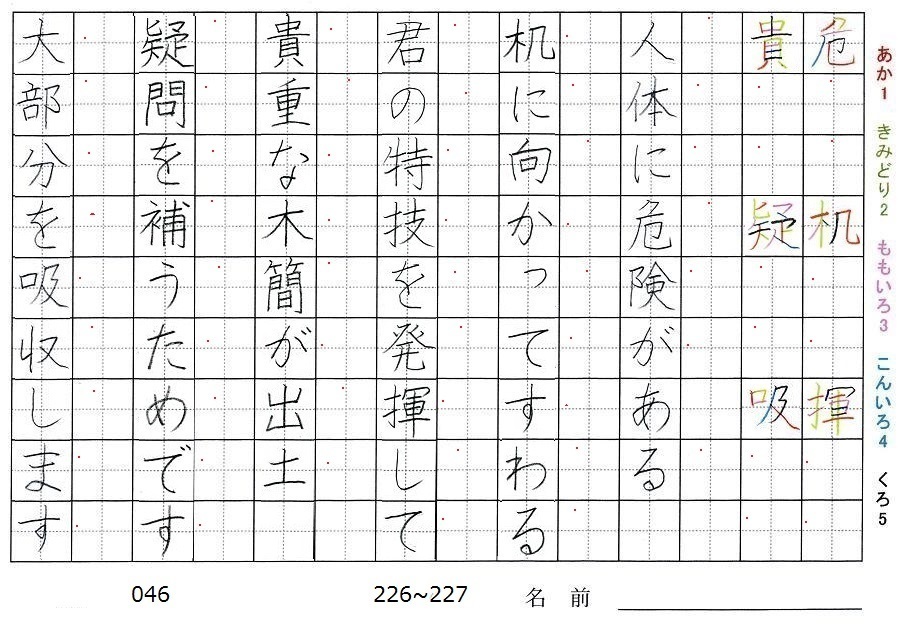 あか1 きみどり2 ももいろ3 こんいろ4 くろ5
危 机 揮
貴 疑 吸
人体に危険がある
机に向かってすわる
君の特技を発揮して
貴重な木簡が出土
疑問を補うためです
大部分を吸収します
046 226~227 名前